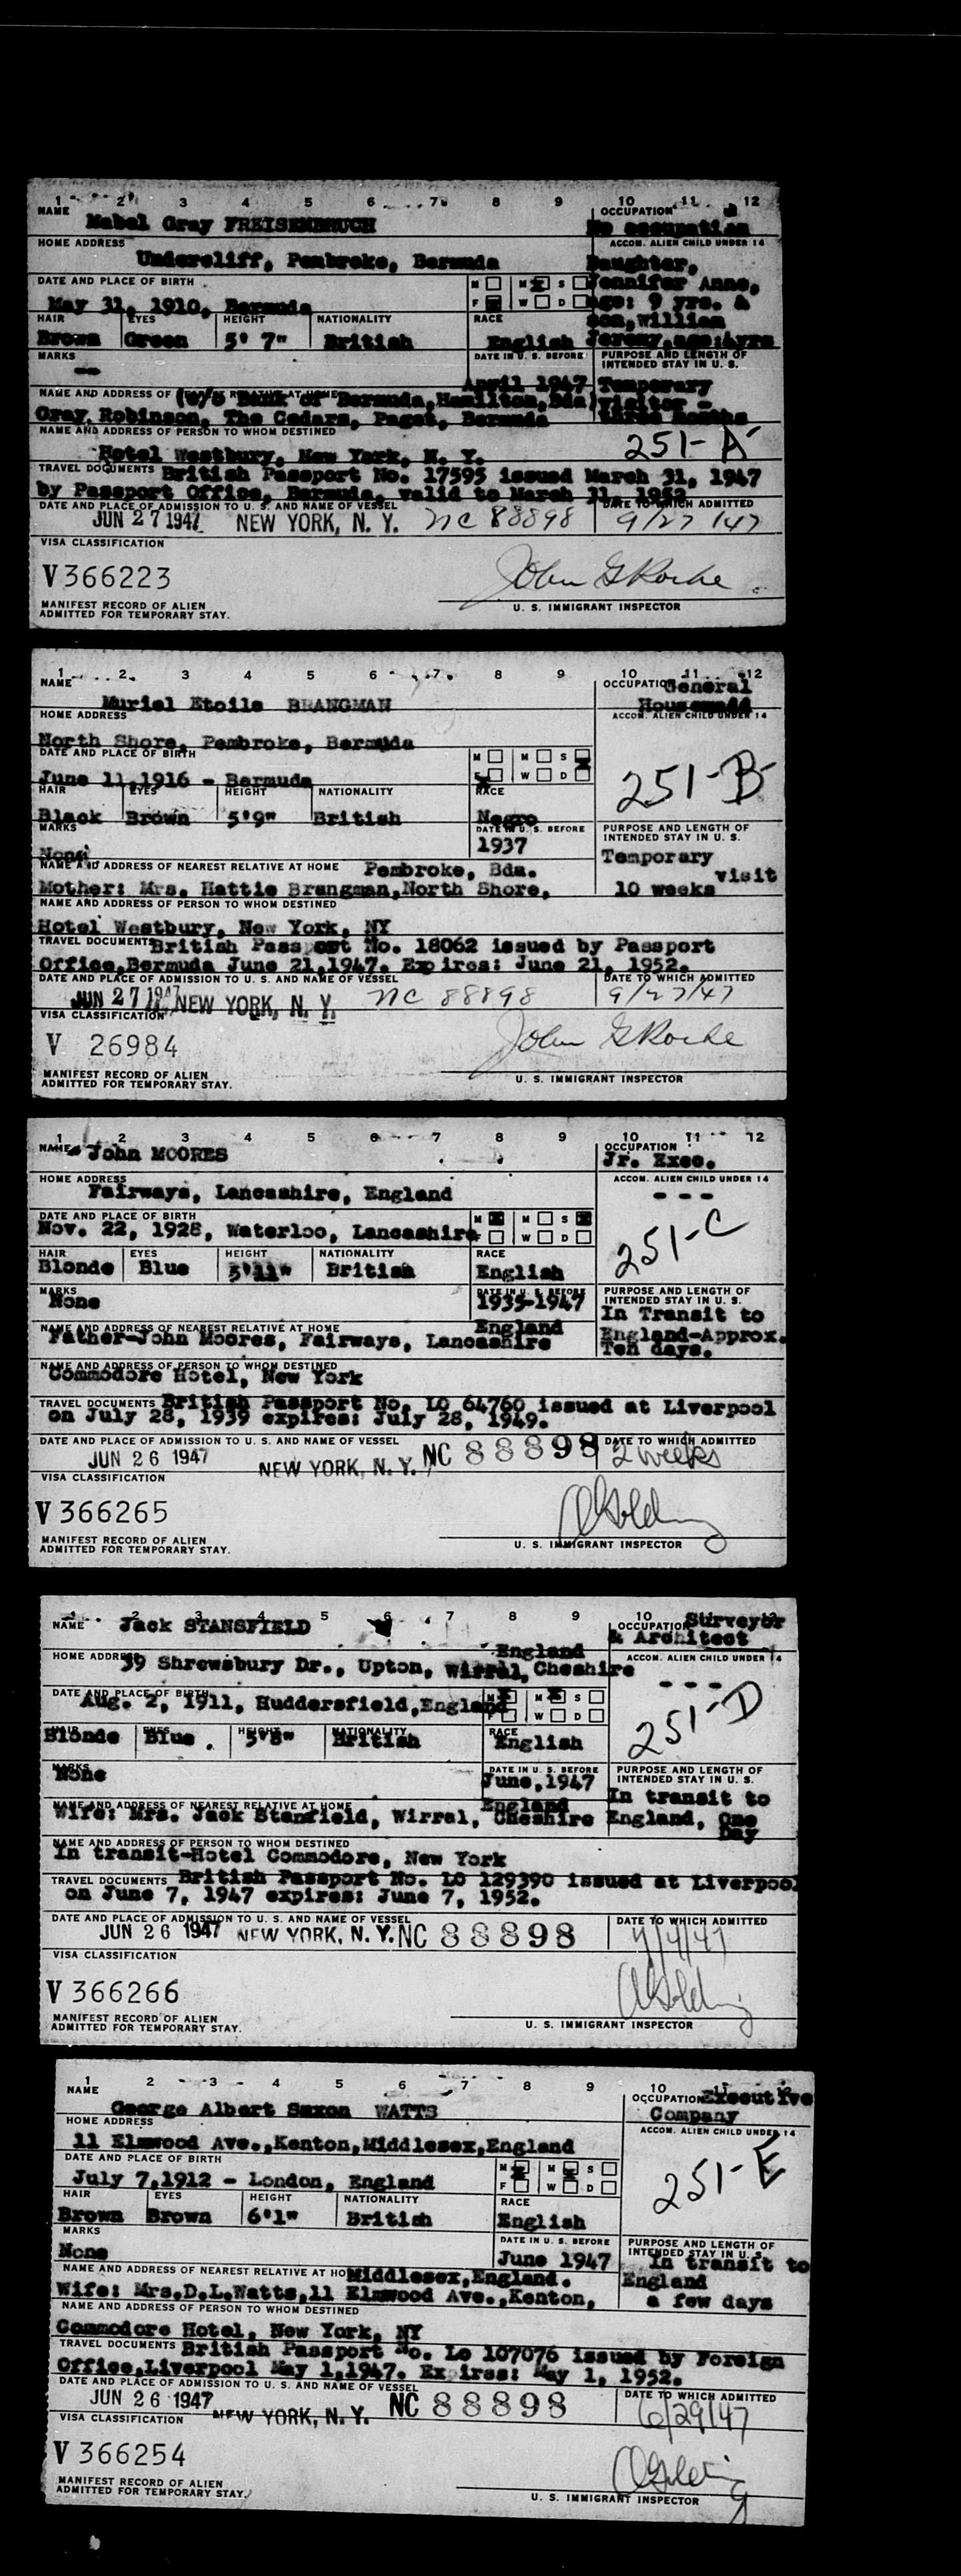 1 2 3 4 5 6 7 8 9 10 11 12
NAME
Mabel Gray FREISENBRUCH
OCCUPATION
No occupation
HOME ADDRESS
Undercliff, Pembroke, Bermuda
ACCOM. ALIEN CHILD UNDER 14
Daughter,
Jennifer Anne,
age: 9 yrs. &
son, William
Jeremy, age: 4yrs
DATE AND PLACE OF BIRTH
May 31, 1910, Bermuda
M M S
F W D
HAIR EYES HEIGHT NATIONALITY RACE
Brown Green 5' 7" British English
MARKS
--
DATE IN U. S. BEFORE
April 1947
PURPOSE AND LENGTH OF
INTENDED STAY IN U. S.
Temporary
visitor -
three months
NAME AND ADDRESS OF NEAREST RELATIVE AT HOME
(c/o Bank of Bermuda, Hamilton, Bda
Gray, Robinson, The Cedars, Paget, Bermuda
NAME AND ADDRESS OF PERSON TO WHOM DESTINED
Hotel Westbury, New York, N. Y.
251-A
TRAVEL DOCUMENTS British Passport No. 17595 issued March 31, 1947
by Passport Office, Bermuda, valid to March 31, 1952
DATE AND PLACE OF ADMISSION TO U. S. AND NAME OF VESSEL
DATE TO WHICH ADMITTED
JUN 27 1947 NEW YORK, N. Y. NC 88898 9/27/47
VISA CLASSIFICATION
V 366223
John G Roche
MANIFEST RECORD OF ALIEN
ADMITTED FOR TEMPORARY STAY.
U. S. IMMIGRANT INSPECTOR
1 2 3 4 5 6 7 8 9 10 11 12
NAME
Muriel Etoile BRANGMAN
OCCUPATION General
Housemaid
HOME ADDRESS
North Shore, Pembroke, Bermuda
ACCOM. ALIEN CHILD UNDER 14
DATE AND PLACE OF BIRTH
June 11,1916 - Bermuda
M M S
F W D
251-B
HAIR EYES HEIGHT NATIONALITY RACE
Black Brown 5'9" British Negro
MARKS
None
DATE IN U. S. BEFORE
1937
PURPOSE AND LENGTH OF
INTENDED STAY IN U. S.
Temporary
visit
10 weeks
NAME AND ADDRESS OF NEAREST RELATIVE AT HOME Pembroke, Bda.
Mother: Mrs. Hattie Brangman, North Shore,
NAME AND ADDRESS OF PERSON TO WHOM DESTINED
Hotel Westbury, New York, NY
TRAVEL DOCUMENTS British Passport No. 18062 issued by Passport
Office,Bermuda June 21,1947. Expires: June 21, 1952.
DATE AND PLACE OF ADMISSION TO U. S. AND NAME OF VESSEL
DATE TO WHICH ADMITTED
JUN 27 1947 NEW YORK, N. Y. NC 88898 9/27/47
VISA CLASSIFICATION
V 26984
John G Roche
MANIFEST RECORD OF ALIEN
ADMITTED FOR TEMPORARY STAY.
U. S. IMMIGRANT INSPECTOR
1 2 3 4 5 6 7 8 9 10 11 12
NAME John MOORES
OCCUPATION
Jr. Exec.
HOME ADDRESS
Fairways, Lancashire, England
ACCOM. ALIEN CHILD UNDER 14
- - -
DATE AND PLACE OF BIRTH
Nov. 22, 1928, Waterloo, Lancashire
M M S
F W D
251-C
HAIR EYES HEIGHT NATIONALITY RACE
Blonde Blue 5'11" British English
MARKS
None
DATE IN U. S. BEFORE
1935-1947
PURPOSE AND LENGTH OF
INTENDED STAY IN U. S.
In Transit to
England-Approx.
Ten days.
NAME AND ADDRESS OF NEAREST RELATIVE AT HOME England
Father-John Moores, Fairways, Lancashire
NAME AND ADDRESS OF PERSON TO WHOM DESTINED
Commodore Hotel, New York
TRAVEL DOCUMENTS British Passport No. LO 64760 issued at Liverpool
on July 28, 1939 expires: July 28, 1949.
DATE AND PLACE OF ADMISSION TO U. S. AND NAME OF VESSEL
DATE TO WHICH ADMITTED
JUN 26 1947 NEW YORK, N. Y. NC 88898 2 weeks
VISA CLASSIFICATION
V 366265
MANIFEST RECORD OF ALIEN
ADMITTED FOR TEMPORARY STAY.
U. S. IMMIGRANT INSPECTOR
1 2 3 4 5 6 7 8 9 10 12
NAME Jack STANSFIELD
OCCUPATION Surveyor
& Architect
HOME ADDRESS England
39 Shrewsbury Dr., Upton, Wirral, Cheshire
ACCOM. ALIEN CHILD UNDER 14
- - -
DATE AND PLACE OF BIRTH
Aug. 2, 1911, Huddersfield,England
M M S
F W D
251-D
HAIR EYES HEIGHT NATIONALITY RACE
Blonde Blue 5'8" British English
MARKS
None
DATE IN U. S. BEFORE
June,1947
PURPOSE AND LENGTH OF
INTENDED STAY IN U. S.
In transit to
England, One
Day
NAME AND ADDRESS OF NEAREST RELATIVE AT HOME England
Wife: Mrs. Jack Stanfield, Wirral, Cheshire
NAME AND ADDRESS OF PERSON TO WHOM DESTINED
In transit-Hotel Commodore, New York
TRAVEL DOCUMENTS British Passport No. LO 129390 issued at Liverpool
on June 7, 1947 expires: June 7, 1952.
DATE AND PLACE OF ADMISSION TO U. S. AND NAME OF VESSEL
DATE TO WHICH ADMITTED
JUN 26 1947 NEW YORK, N. Y. NC 88898
VISA CLASSIFICATION
V 366266
MANIFEST RECORD OF ALIEN
ADMITTED FOR TEMPORARY STAY.
U. S. IMMIGRANT INSPECTOR
1 2 3 4 5 6 7 8 9 10 12
NAME
George Albert Saxon WATTS
OCCUPATION Executive
Company
HOME ADDRESS
11 Elmwood Ave.,Kenton,Middlesex,England
ACCOM. ALIEN CHILD UNDER 14
DATE AND PLACE OF BIRTH
July 7,1912 - London, England
M M S
F W D
251-E
HAIR EYES HEIGHT NATIONALITY RACE
Brown Brown 6'1" British English
MARKS
None
DATE IN U. S. BEFORE
June 1947
PURPOSE AND LENGTH OF
INTENDED STAY IN U. S.
In transit to
England
a few days
NAME AND ADDRESS OF NEAREST RELATIVE AT HO Middlesex,England.
Wife: Mrs.D.L.Watts,11 Elmwood Ave.,Kenton,
NAME AND ADDRESS OF PERSON TO WHOM DESTINED
Commodore Hotel, New York, NY
TRAVEL DOCUMENTS British Passport No. Lo 107076 issued by Foreign
Office,Liverpool May 1,1947. Expires: May 1, 1952.
DATE AND PLACE OF ADMISSION TO U. S. AND NAME OF VESSEL
DATE TO WHICH ADMITTED
JUN 26 1947 NEW YORK, N. Y. NC 88898 6/29/47
VISA CLASSIFICATION
V 366254
MANIFEST RECORD OF ALIEN
ADMITTED FOR TEMPORARY STAY.
U. S. IMMIGRANT INSPECTOR